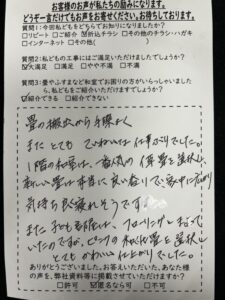 お客様のお声が私たちの励みになります。
どうぞ一言だけでもお声をお寄せください。お待ちしております。
質問1:今回私どもをどちらでお知りになりましたか?
□リピート □ご紹介 ☑折込チラシ □その他のチラシ・ハガキ
□インターネット □その他( )
質問2:私どもの工事にはご満足いただけましたでしょうか?
☑大満足 □満足 □やや不満 □不満
質問3:畳やふすまなど和室でお困りの方がいらっしゃいましたら、私どもをご紹介いただけますでしょうか?
☑紹介できる □紹介できない
畳の搬出から手際よく
また とても ていねいな 仕事ぶりでした。
1階の和室は、 の 畳を選択し
新しい畳は本当に良い香りで、家中に
気持ち良く寝れそうです。
また 子ども部屋は、フローリングと まよって
いたのですが、ピンクの 和紙畳を選択し
とても かわいい 仕上がりでした。
ありがとうございました。お答えいただいた、あなた様
の声を、弊社資料等に掲載させていただけますか?
□許可 ☑匿名なら可 □不可